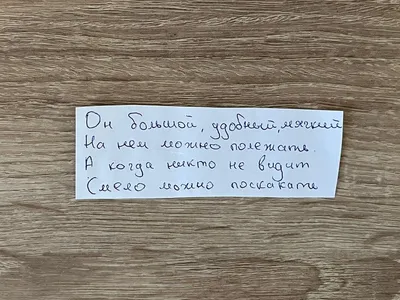 Он большой, удобный, мягкий
На нем можно полежать.
А когда никто не видит
Смело можно поскакать